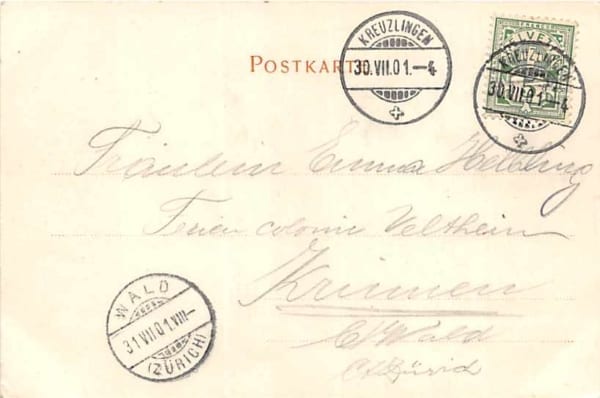 KREUZLINGEN
30.VII.01.–4
POSTKARTE
HELVETIA
KREUZLINGEN
30.VII.01.–4
Fräulein Emma Helbling
Ferien colonie Veltheim
b/Wald
Ct. Zürich
WALD
31.VII.01.VIII–
(ZÜRICH)